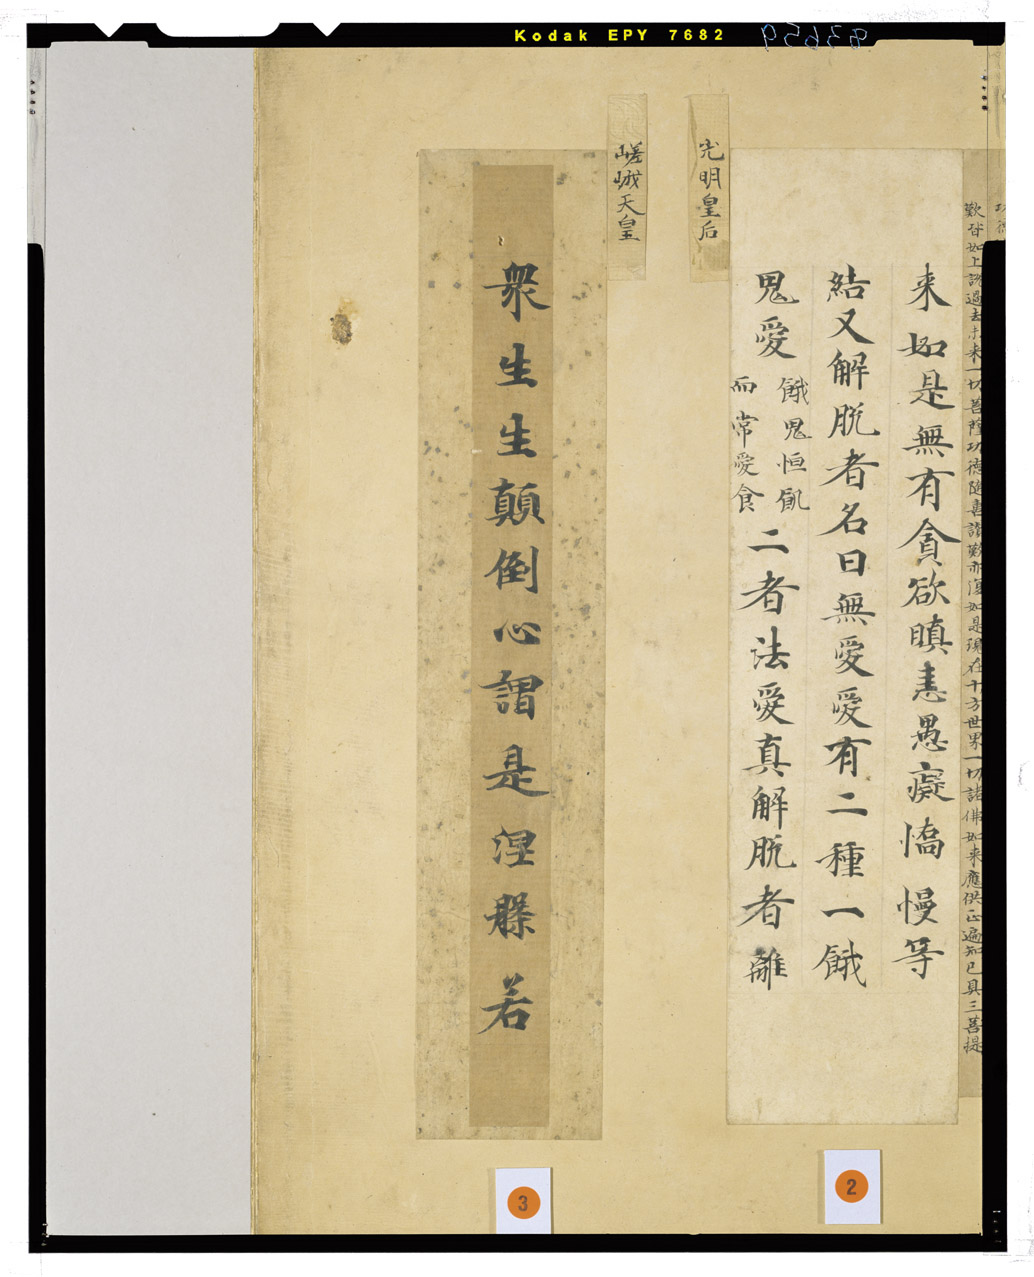 Kodak EPY 7682
83659
功德
歎皆如上說過去未来一切菩薩功德隨喜讚歎亦復如是現在十方世界一切諸佛如来應供正遍知已具三菩提
光明皇后
来如是無有貪欲瞋恚愚癡憍慢等
結又解脱者名曰無愛愛有二種一餓
鬼愛
餓鬼恒飢
而常愛食
二者法愛真解脱者離
嵯峨天皇
衆生生顛倒心謂是涅槃若
2
3